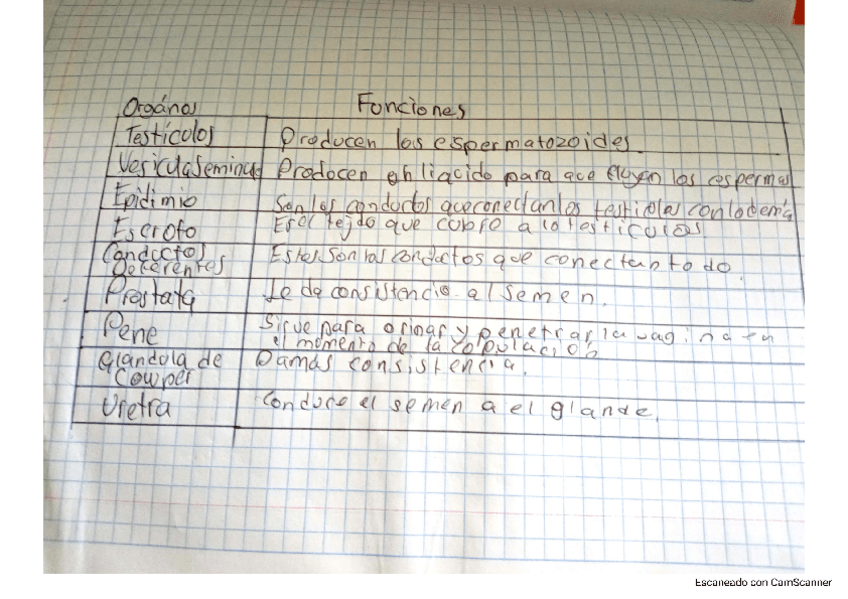 Orgános Funciones
Testícolos Producen los espermatozoides.
Vesicula Seminal Producen oh liqcido para que fluyen los espermas
Epidimio Son los conductos que conectan los testiolas con lo demá
Escroto Es el tejdo que cubre a lo testículos
Conductos Deferentes Estos son los conductos que conectan todo.
Prostata Le da consistencia al semen.
Pene Sirve para orinar y penetrar la vagina en
el momento de la copulación
Glandola de Cowper Damás consistencia.
Uretra Conduce el semen a el glande.
Escaneado con CamScanner